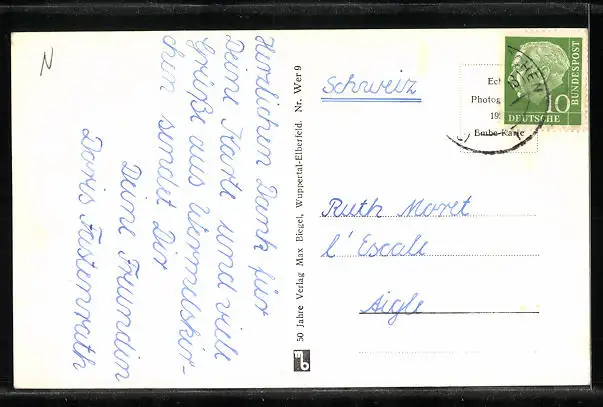 N
Herzlichen Dank für
Deine Karte und viele
Grüße aus Wermelskir-
chen sendet Dir
Deine Freundin
Doris Fastenrath
50 Jahre Verlag Max Biegel, Wuppertal-Elberfeld. Nr. Wer 9
mb
Schweiz
Photog
Karie
10
DEUTSCHE
BUNDESPOST
HEN
Ruth Moret
l'Escale
Aigle